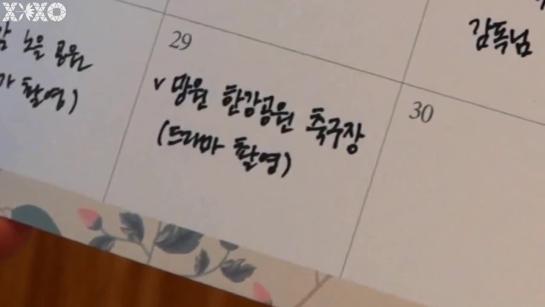 XOXO
감독님
노을 공원
촬영)
29
v 망원 한강공원 축구장
(드라마 촬영)
30